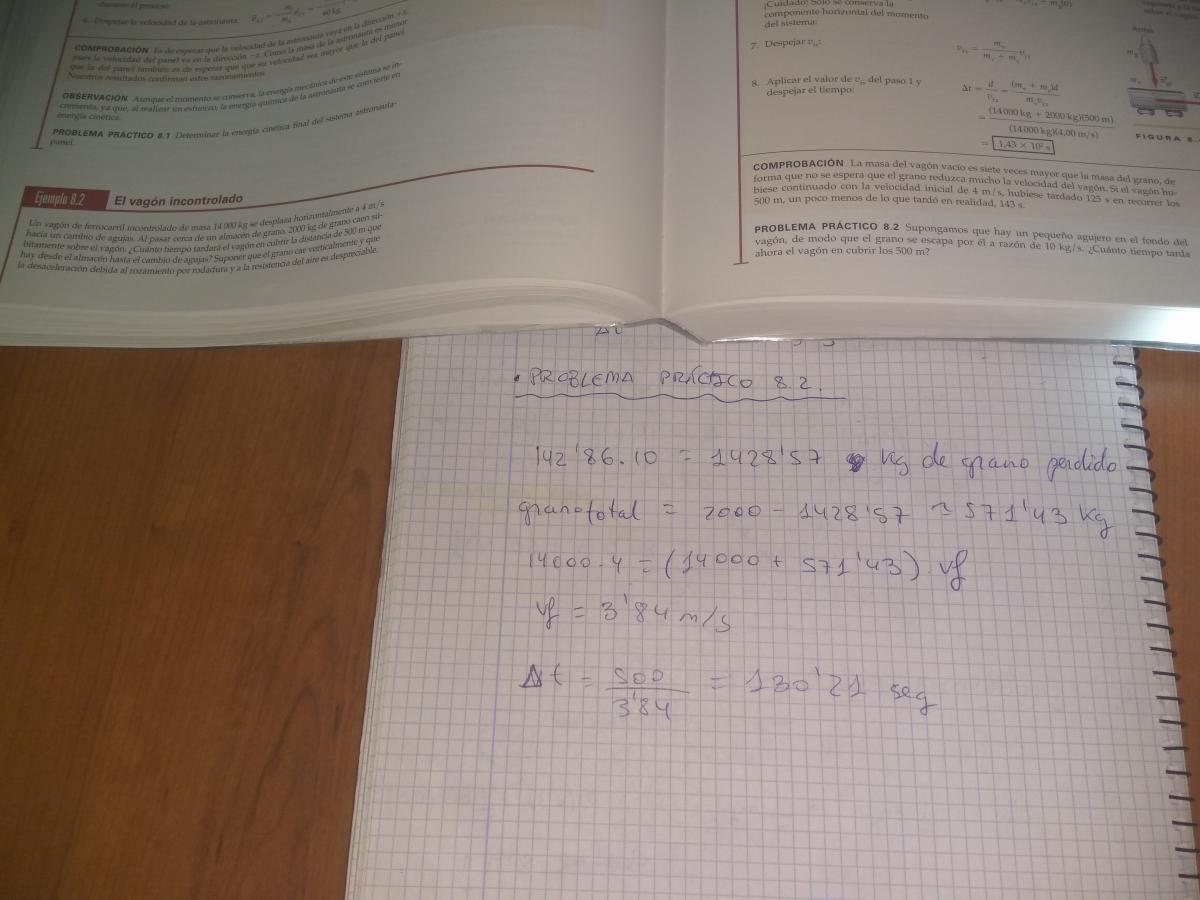 durante el proceso:
4. Despejar la velocidad de la astronauta:
60 kg
COMPROBACIÓN Es de esperar que la velocidad de la astronauta vaya en la dirección +x,
pues la velocidad del panel va en la dirección −x. Como la masa de la astronauta es menor
que la del panel también es de esperar que su velocidad sea mayor que la del panel.
Nuestros resultados confirman estos razonamientos.
OBSERVACIÓN Aunque el momento se conserva, la energía mecánica de este sistema se in-
crementa, ya que, al realizar un esfuerzo, la energía química de la astronauta se convierte en
energía cinética.
PROBLEMA PRÁCTICO 8.1 Determinar la energía cinética final del sistema astronauta-
panel.
Ejemplo 8.2 El vagón incontrolado
Un vagón de ferrocarril incontrolado de masa 14 000 kg se desplaza horizontalmente a 4 m/s
hacia un cambio de agujas. Al pasar cerca de un almacén de grano, 2000 kg de grano caen sú-
bitamente sobre el vagón. ¿Cuánto tiempo tardará el vagón en cubrir la distancia de 500 m que
hay desde el almacén hasta el cambio de agujas? Suponer que el grano cae verticalmente y que
la desaceleración debida al rozamiento por rodadura y a la resistencia del aire es despreciable.
¡Cuidado! Sólo se conserva la
componente horizontal del momento
del sistema:
7. Despejar vfx:
8. Aplicar el valor de vfx del paso 1 y
despejar el tiempo:
Δt = d / vfx = (mv + mg)d / mvvix
= (14 000 kg + 2000 kg)(500 m) / (14 000 kg)(4,00 m/s)
= 1,43 × 10² s
FIGURA 8.
COMPROBACIÓN La masa del vagón vacío es siete veces mayor que la masa del grano, de
forma que no se espera que el grano reduzca mucho la velocidad del vagón. Si el vagón hu-
biese continuado con la velocidad inicial de 4 m/s, hubiese tardado 125 s en recorrer los
500 m, un poco menos de lo que tardó en realidad, 143 s.
PROBLEMA PRÁCTICO 8.2 Supongamos que hay un pequeño agujero en el fondo del
vagón, de modo que el grano se escapa por él a razón de 10 kg/s. ¿Cuánto tiempo tarda
ahora el vagón en cubrir los 500 m?
• PROBLEMA PRÁCTICO 8.2.
142'86.10 = 1428'57 kg de grano perdido
grano total = 2000 - 1428'57 ≈ 571'43 kg
14000.4 = (14000 + 571'43) . vf
vf = 3'84 m/s
Δt = 500 / 3'84 = 130'21 seg